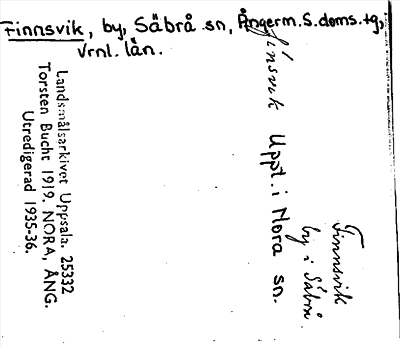 Finnsvik, by, Säbrå sn, Ångerm. S. doms. tg,
Vrnl. län.
Landsmålsarkivet Uppsala. 25332
Torsten Bucht 1919. NORA, ÅNG.
Utredigerad 1935-36.
Finsvik Uppt. i Nora sn.
Finnsvik
by i Säbrå.